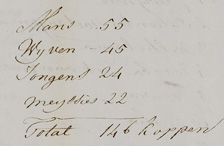 Mans 55
Wyven - 45
Jongens 24
meysies 22
Total 146 koppen